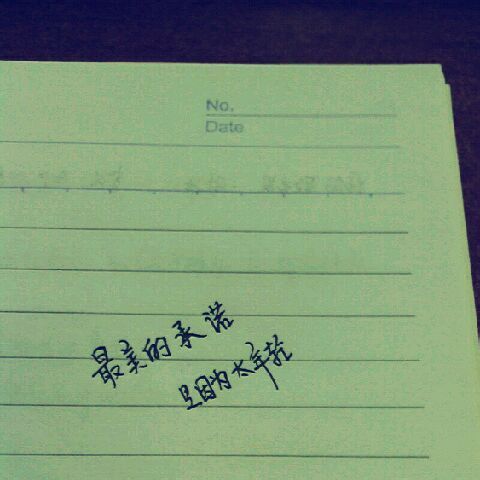 No.
Date
最美的承诺
只因为太年轻